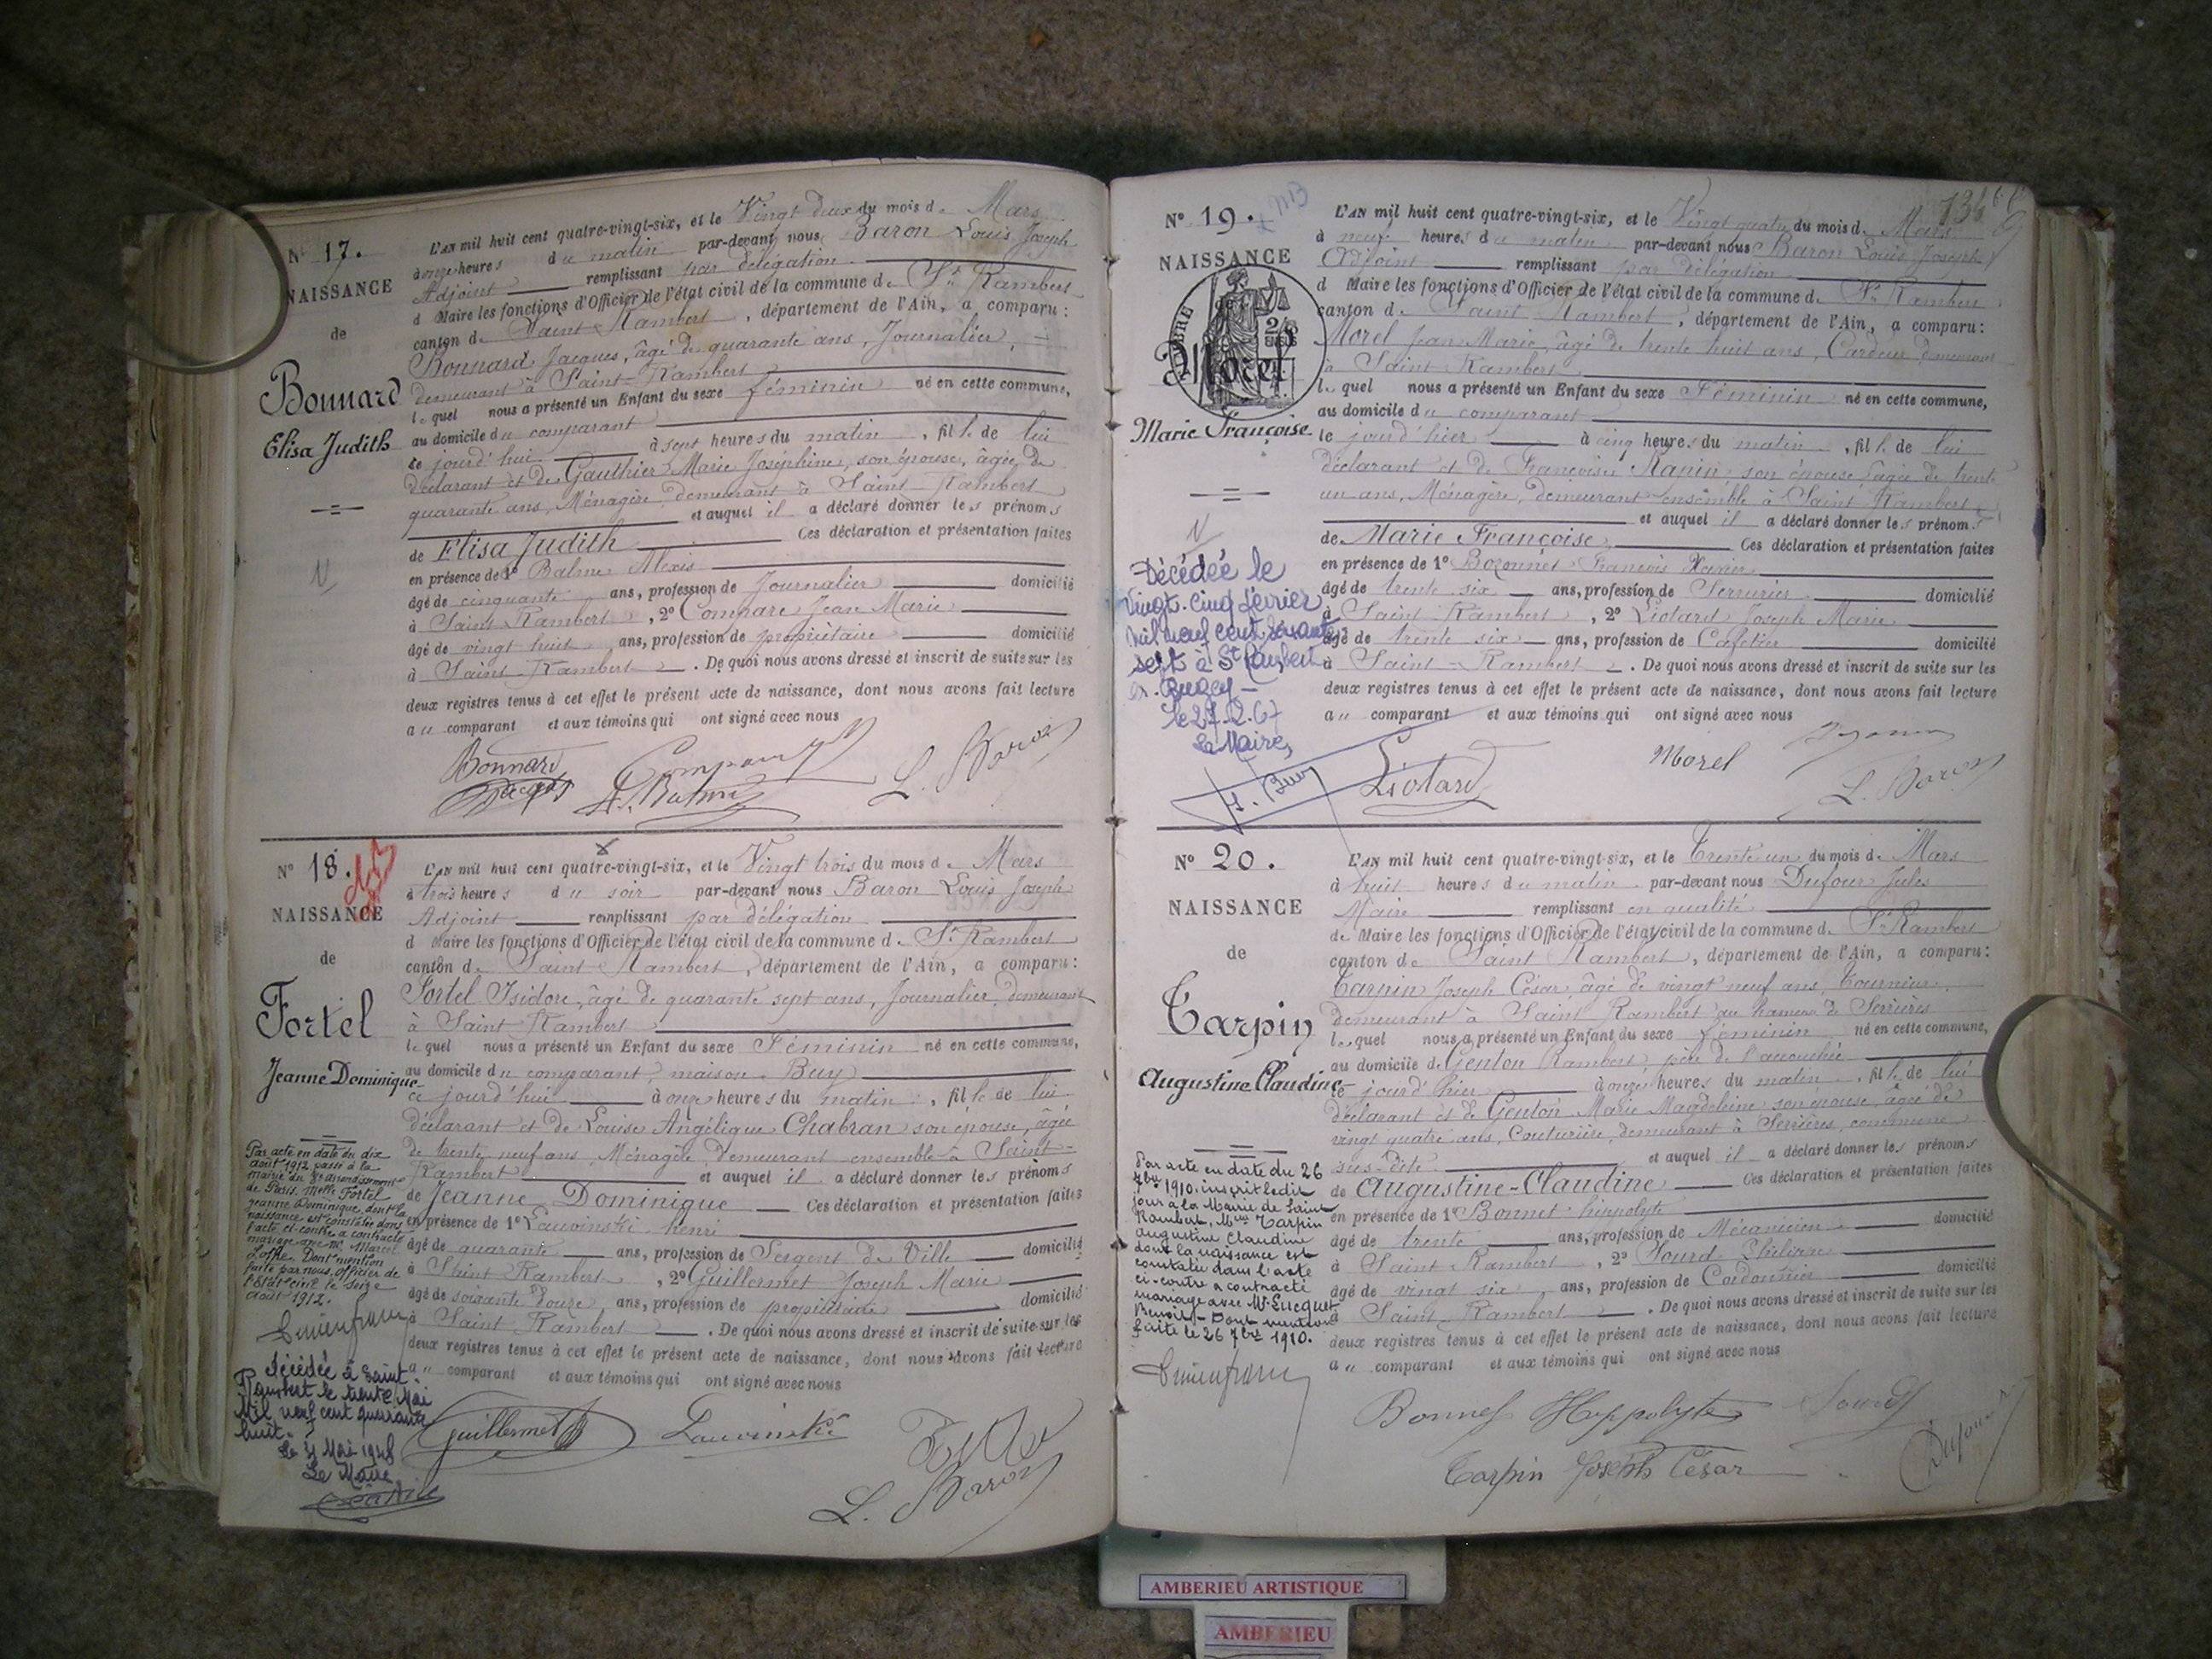 N° 17.
NAISSANCE
de
Bonnard
Elisa Judith
N
L'AN mil huit cent quatre-vingt-six, et le Vingt deux du mois de Mars
à onze heures du matin par-devant nous Baron Louis Joseph
Adjoint remplissant par délégation
d Maire les fonctions d'Officier de l'état civil de la commune de St Rambert
canton de Saint Rambert, département de l'Ain, a comparu:
Bonnard Jacques, âgé de quarante ans, Journalier,
demeurant à Saint-Rambert
lequel nous a présenté un Enfant du sexe féminin né en cette commune,
au domicile du comparant
ce jourd'hui à sept heures du matin, fille de lui
déclarant et de Gauthier Marie Joséphine, son épouse, âgée de
quarante ans, Ménagère, demeurant à Saint-Rambert
et auquel il a déclaré donner les prénoms
de Elisa Judith Ces déclaration et présentation faites
en présence de 1° Balme Alexis
âgé de cinquante ans, profession de Journalier domicilié
à Saint Rambert, 2° Compare Jean Marie
âgé de vingt huit ans, profession de propriétaire domicilié
à Saint-Rambert. De quoi nous avons dressé et inscrit de suite sur les
deux registres tenus à cet effet le présent acte de naissance, dont nous avons fait lecture
au comparant et aux témoins qui ont signé avec nous
Bonnard Jacques
A. Balme
L. Baron
N° 18.
NAISSANCE
de
Fortel
Jeanne Dominique
Par acte en date du dix
août 1912 passé à la
mairie du 8e arrondissement
de Paris, Melle Fortel
Jeanne Dominique, dont la
naissance est constatée dans
l'acte ci-contre a contracté
mariage avec Mr Marcel
Lothe. Dont mention
faite par nous, officier de
l'état civil le seize
août 1912.
Décédée à Saint-
Rambert le trente Mai
Mil neuf cent quarante
huit.
Le 31 Mai 1948
Le Maire
L'AN mil huit cent quatre-vingt-six, et le Vingt trois du mois de Mars
à trois heures du soir par-devant nous Baron Louis Joseph
Adjoint remplissant par délégation
d Maire les fonctions d'Officier de l'état civil de la commune de St Rambert
canton de Saint Rambert, département de l'Ain, a comparu:
Fortel Isidore, âgé de quarante sept ans, Journalier, demeurant
à Saint Rambert
lequel nous a présenté un Enfant du sexe Féminin né en cette commune,
au domicile du comparant, maison Buy
ce jourd'hui à onze heures du matin, fille de lui
déclarant et de Louise Angélique Chabran son épouse, âgée
de trente neuf ans, Ménagère, demeurant ensemble à Saint-
Rambert et auquel il a déclaré donner les prénoms
de Jeanne Dominique Ces déclaration et présentation faites
en présence de 1° Lauvinski henri
âgé de quarante ans, profession de Sergent de Ville domicilié
à Saint Rambert, 2° Guillermet Joseph Marie
âgé de soixante douze ans, profession de propriétaire domicilié
à Saint Rambert. De quoi nous avons dressé et inscrit de suite sur les
deux registres tenus à cet effet le présent acte de naissance, dont nous avons fait lecture
au comparant et aux témoins qui ont signé avec nous
Guillermet
L. Baron
N° 19.
NAISSANCE
TIMBRE
Morel
Marie Françoise
N
Décédée le
vingt-cinq février
mil neuf cent soixante
sept à St Rambert
en Bugey
le 27.2.67
Le Maire,
L'AN mil huit cent quatre-vingt-six, et le Vingt quatre du mois de Mars
à neuf heures du matin par-devant nous Baron Louis Joseph
Adjoint remplissant par délégation
d Maire les fonctions d'Officier de l'état civil de la commune de St Rambert
canton de Saint Rambert, département de l'Ain, a comparu:
Morel Jean Marie, âgé de trente huit ans, Cardeur demeurant
à Saint Rambert
lequel nous a présenté un Enfant du sexe Féminin né en cette commune,
au domicile du comparant
le jourd'hier à cinq heures du matin, fille de lui
déclarant et de Françoise son épouse, âgée de trente
un ans, Ménagère, demeurant ensemble à Saint Rambert
et auquel il a déclaré donner les prénoms
de Marie Françoise Ces déclaration et présentation faites
en présence de 1° François Xavier
âgé de trente six ans, profession de Serrurier domicilié
à Saint Rambert, 2° Liotard Joseph Marie
âgé de trente six ans, profession de Cafetier domicilié
à Saint-Rambert. De quoi nous avons dressé et inscrit de suite sur les
deux registres tenus à cet effet le présent acte de naissance, dont nous avons fait lecture
au comparant et aux témoins qui ont signé avec nous
Liotard
Morel
L. Baron
N° 20.
NAISSANCE
de
Tarpin
Augustine Claudine
Par acte en date du 26
7bre 1910, inscrit ledit
jour à la Mairie de Saint
Rambert, Melle Tarpin
Augustine Claudine
dont la naissance est
constatée dans l'acte
ci-contre a contracté
mariage avec Mr Lucquet
Benoît. Dont mention
faite le 26 7bre 1910.
L'AN mil huit cent quatre-vingt-six, et le Trente un du mois de Mars
à huit heures du matin par-devant nous Dufour Jules
Maire remplissant en qualité
de Maire les fonctions d'Officier de l'état civil de la commune de St Rambert
canton de Saint Rambert, département de l'Ain, a comparu:
Tarpin Joseph César, âgé de vingt neuf ans, Tourneur,
demeurant à Saint Rambert au hameau de Serrières
lequel nous a présenté un Enfant du sexe féminin né en cette commune,
au domicile de Genton Rambert, père de l'accouchée
le jourd'hier à onze heures du matin, fille de lui
déclarant et de Genton Marie Magdeleine son épouse, âgée de
vingt quatre ans, Couturière, demeurant à Serrières, commune
sus-dite et auquel il a déclaré donner les prénoms
de Augustine-Claudine Ces déclaration et présentation faites
en présence de 1° Bonnet hippolyte
âgé de trente ans, profession de Mécanicien domicilié
à Saint Rambert, 2° Sourd
âgé de vingt six ans, profession de Cordonnier domicilié
à Saint Rambert. De quoi nous avons dressé et inscrit de suite sur les
deux registres tenus à cet effet le présent acte de naissance, dont nous avons fait lecture
au comparant et aux témoins qui ont signé avec nous
Bonnet Hippolyte Sourd
Tarpin Joseph César Dufour
AMBERIEU ARTISTIQUE
AMBERIEU